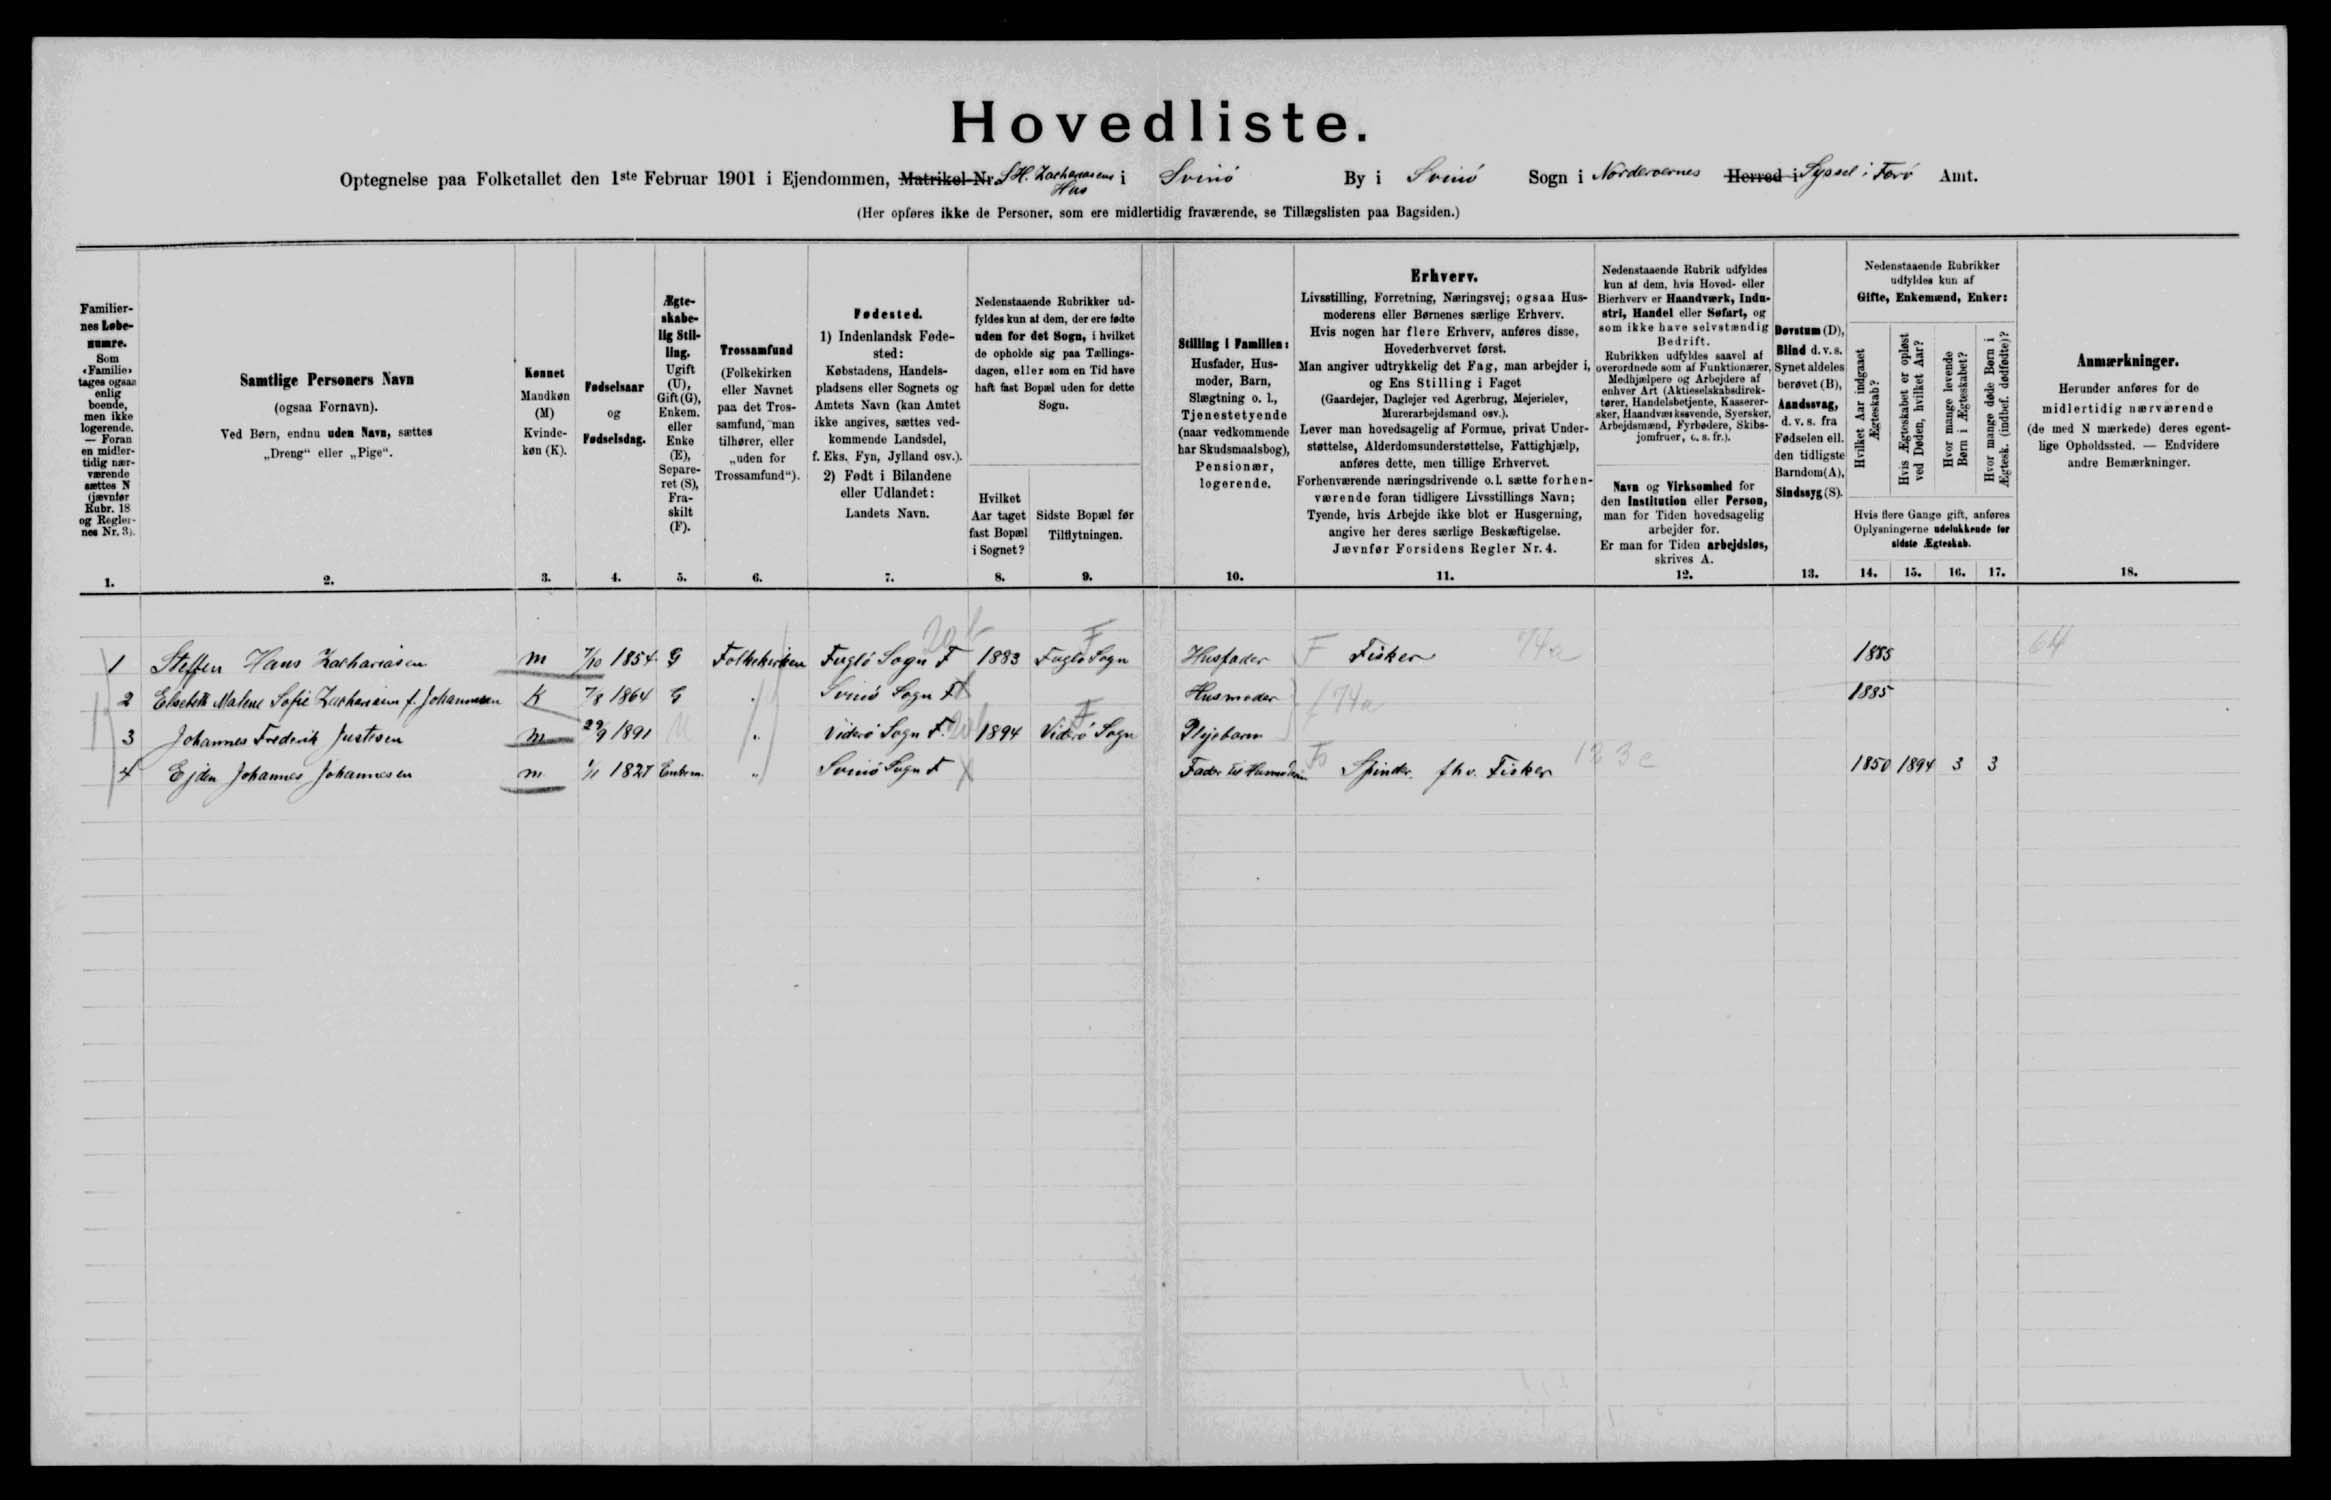 Hovedliste.
Optegnelse paa Folketallet den 1ste Februar 1901 i Ejendommen, Matrikel-Nr. S.H. Zachariasens Hus i Svinö By i Svinö Sogn i Norderoernes Herred i Syssel i Færö Amt.
(Her opføres ikke de Personer, som ere midlertidig fraværende, se Tillægslisten paa Bagsiden.)
Familiernes Løbenumre. Som «Familie» tages ogsaa enlig boende, men ikke logerende. — Foran en midlertidig nærværende sættes N (jævnfør Rubr. 18 og Reglernes Nr. 3).
Samtlige Personers Navn
(ogsaa Fornavn).
Ved Børn, endnu uden Navn, sættes
„Dreng“ eller „Pige“.
Kønnet
Mandkøn (M)
Kvindekøn (K).
Fødselsaar
og
Fødselsdag.
Ægteskabelig Stilling.
Ugift (U), Gift (G), Enkem. eller Enke (E), Separeret (S), Fraskilt (F).
Trossamfund
(Folkekirken eller Navnet paa det Trossamfund, man tilhører, eller „uden for Trossamfund“).
Fødested.
1) Indenlandsk Fødested:
Købstadens, Handelspladsens eller Sognets og Amtets Navn (kan Amtet ikke angives, sættes vedkommende Landsdel, f. Eks. Fyn, Jylland osv.).
2) Født i Bilandene eller Udlandet:
Landets Navn.
Nedenstaaende Rubrikker udfyldes kun af dem, der ere fødte uden for det Sogn, i hvilket de opholde sig paa Tællingsdagen, eller som en Tid have haft fast Bopæl uden for dette Sogn.
Hvilket Aar taget fast Bopæl i Sognet?
Sidste Bopæl før Tilflytningen.
Stilling i Familien:
Husfader, Husmoder, Barn, Slægtning o. l., Tjenestetyende (naar vedkommende har Skudsmaalsbog), Pensionær, logerende.
Erhverv.
Livsstilling, Forretning, Næringsvej; ogsaa Husmoderens eller Børnenes særlige Erhverv.
Hvis nogen har flere Erhverv, anføres disse, Hovederhvervet først.
Man angiver udtrykkelig det Fag, man arbejder i, og Ens Stilling i Faget
(Gaardejer, Daglejer ved Agerbrug, Mejerielev, Murerarbejdsmand osv.).
Lever man hovedsagelig af Formue, privat Understøttelse, Alderdomsunderstøttelse, Fattighjælp, anføres dette, men tillige Erhvervet.
Forhenværende næringsdrivende o.l. sætte forhenværende foran tidligere Livsstillings Navn; Tyende, hvis Arbejde ikke blot er Husgerning, angive her deres særlige Beskæftigelse.
Jævnfør Forsidens Regler Nr. 4.
Nedenstaaende Rubrik udfyldes kun af dem, hvis Hoved- eller Bierhverv er Haandværk, Industri, Handel eller Søfart, og som ikke have selvstændig Bedrift.
Rubrikken udfyldes saavel af overordnede som af Funktionærer, Medhjælpere og Arbejdere af enhver Art (Aktieselskabsdirektører, Handelsbetjente, Kasserersker, Haandværkssvende, Syersker, Arbejdsmænd, Fyrbødere, Skibsjomfruer, o. s. fr.).
Navn og Virksomhed for den Institution eller Person, man for Tiden hovedsagelig arbejder for.
Er man for Tiden arbejdsløs, skrives A.
Døvstum (D), Blind d. v. s. Synet aldeles berøvet (B), Aandssvag, d. v. s. fra Fødselen ell. den tidligste Barndom (A), Sindssyg (S).
Nedenstaaende Rubrikker udfyldes kun af
Gifte, Enkemænd, Enker:
Hvilket Aar indgaaet Ægteskab?
Hvis Ægteskabet er opløst ved Døden, hvilket Aar?
Hvor mange levende Børn i Ægteskabet?
Hvor mange døde Børn i Ægtesk. (indbef. dødfødte)?
Hvis flere Gange gift, anføres Oplysningerne udelukkende for sidste Ægteskab.
Anmærkninger.
Herunder anføres for de midlertidig nærværende (de med N mærkede) deres egentlige Opholdssted. — Endvidere andre Bemærkninger.
1. 2. 3. 4. 5. 6. 7. 8. 9. 10. 11. 12. 13. 14. 15. 16. 17. 18.
1 Steffen Hans Zachariasen m 7/10 1854 G Folkekirken Fuglö Sogn F 1883 Fuglö Sogn Husfader F Fisker 74a 1885 64
2 Elsebeth Malene Sofie Zachariasen f. Johannesen K 7/8 1864 G „ Svinö Sogn F Husmoder f 74a 1885
3 Johannes Frederik Justesen m 29/9 1891 U „ Viderö Sogn F. 1894 Viderö Sogn Plejebarn
4 Ejden Johannes Johannesen m 1/1 1827 Enkem. „ Svinö Sogn F Fader til Husmoderen Fo Spinder. fhv. Fisker 123c 1850 1894 3 3